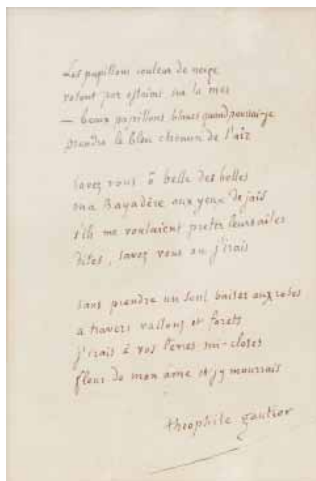 Les papillons couleur de neige
volent par essaims sur la mer
— beaux papillons blancs quand pourrai-je
prendre le bleu chemin de l'air

savez vous ô belle des belles
ma Bayadère aux yeux de jais
s'ils me voulaient preter leurs ailes
dites, savez vous où j'irais

sans prendre un seul baiser aux roses
a travers vallons et forets
j'irais à vos levres mi-closes
fleur de mon ame et j'y mourrais

théophile gautier